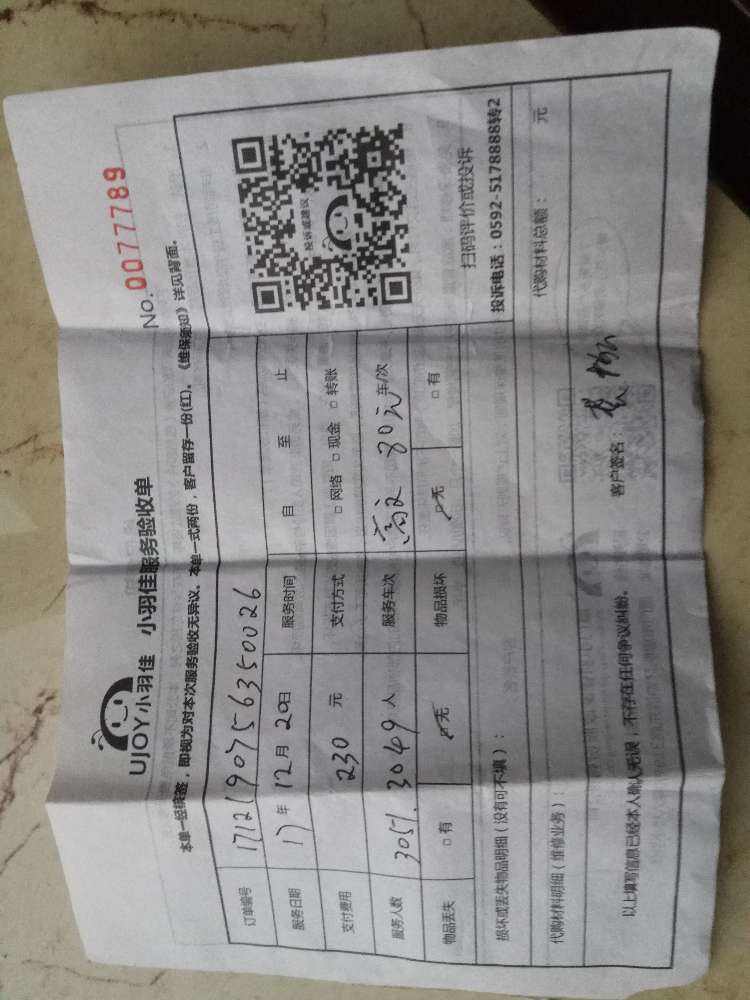 No. 0077789
UJOY小羽佳 小羽佳服务验收单
本单一经续签，即视为对本次服务验收无异议。本单一式两份，客户留存一份(红)。《维保须知》详见背面。
订单编号 1712190756350026
服务日期 17年12月20日 服务时间 自 至 止
支付费用 230 元 支付方式 □ 网络 □ 现金 □ 转账
服务人数 3051. 3049 人 服务车次 80元 车/次
物品丢失 □ 有 □ 无 物品损坏 □ 无 □ 有
投诉或建议
扫码评价或投诉
投诉电话：0592-5178888转2
损坏或丢失物品明细（没有可不填）：
代购材料明细（维修业务）： 代购材料总额： 元
以上填写信息已经本人确认无误，不存在任何争议纠纷。 客户签名：